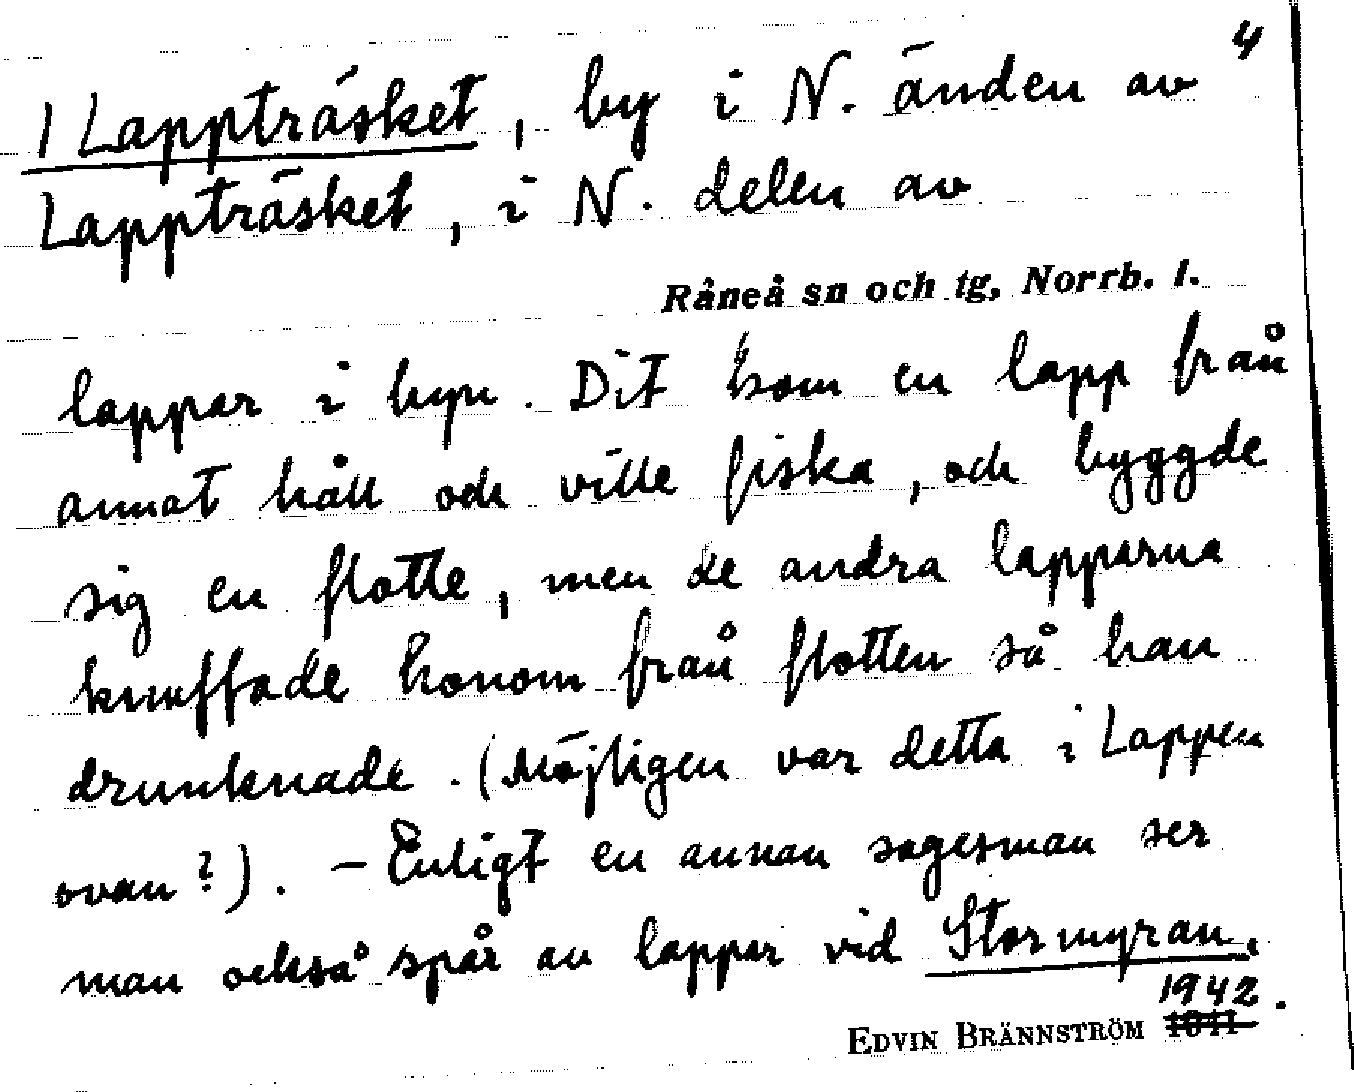 4
1 Lappträsket, by i N. änden av
Lappträsket, i N. delen av
Råneå sn och tg, Norrb. l.
lappar i byn. Dit kom en lapp från
annat håll och ville fiska, och byggde
sig en flotte, men de andra lapparna
knuffade honom från flotten så han
drunknade. (Möjligen var detta i Lappen
ovan?). - Enligt en annan sagesman ser
man också spår av lappar vid Stormyran.
1942.
EDVIN BRÄNNSTRÖM 1941